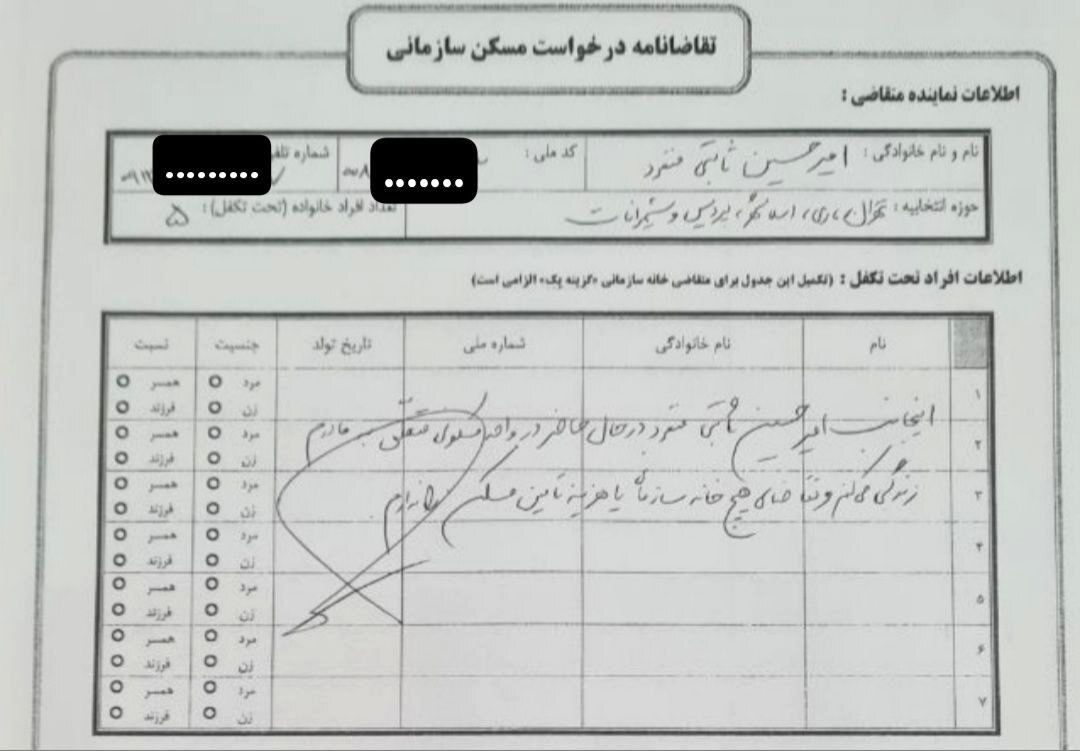 تقاضانامه درخواست مسکن سازمانی
اطلاعات نماینده متقاضی :
نام و نام خانوادگی : امیرحسین ثابتی منفرد
کد ملی :
شماره
حوزه انتخابیه : تهران، ری، اسلامشهر، پردیس و شمیرانات
تعداد افراد خانواده (تحت تکفل) : ۵
اطلاعات افراد تحت تکفل : (تکمیل این جدول برای متقاضی خانه سازمانی «گزینه یک» الزامی است)
نام نام خانوادگی شماره ملی تاریخ تولد جنسیت نسبت
۱ مرد همسر
زن فرزند
۲ مرد همسر
زن فرزند
۳ مرد همسر
زن فرزند
۴ مرد همسر
زن فرزند
۵ مرد همسر
زن فرزند
۶ مرد همسر
زن فرزند
۷ مرد همسر
زن فرزند
اینجانب امیرحسین ثابتی منفرد در حال حاضر در واحد مسکونی متعلق به مادرم
زندگی می‌کنم و تقاضای هیچ خانه سازمانی یا هزینه تامین مسکن را ندارم